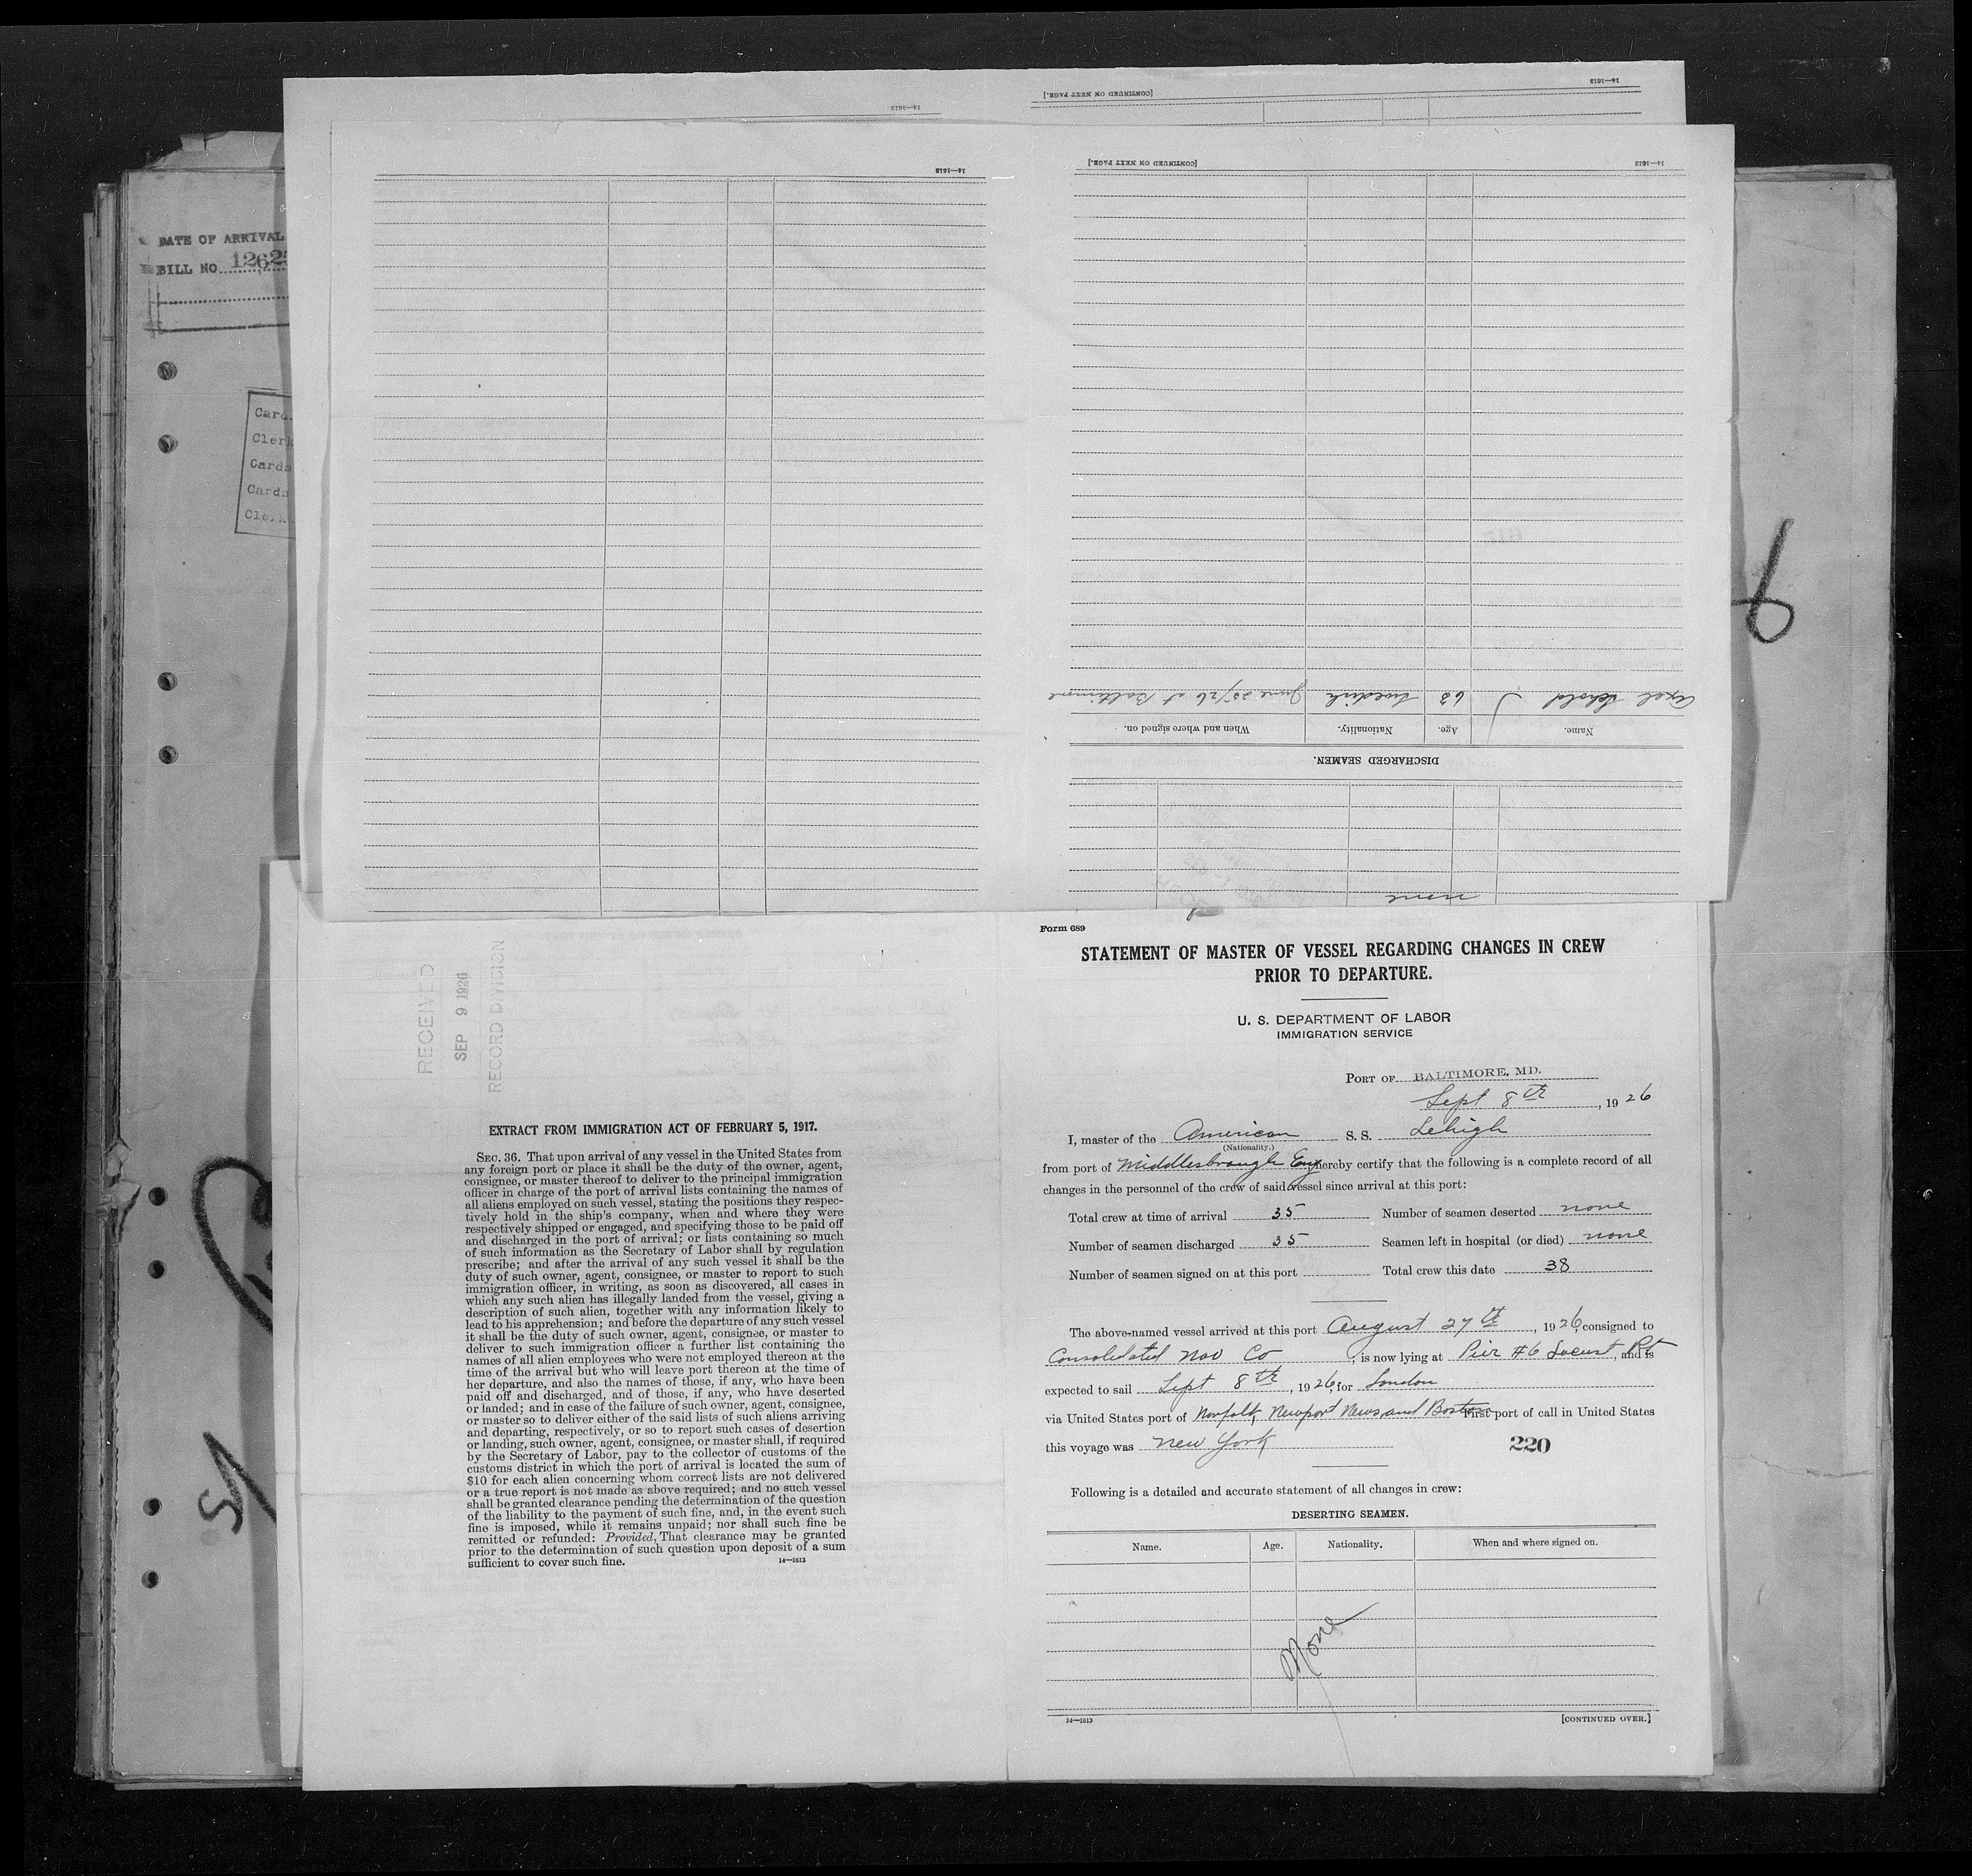 14—1613
[CONTINUED ON NEXT PAGE.]
14—1613
14—1613
[CONTINUED ON NEXT PAGE.]
14—1613
DATE OF ARRIVAL
BILL NO. 1262
Card
Clerk
Cards
Cards
Clerk
6
none
DISCHARGED SEAMEN.
Name. Age. Nationality. When and where signed on.
Axel 63 Swedish June 25/26 at Baltimore
RECEIVED
SEP 9 1926
RECORD DIVISION
EXTRACT FROM IMMIGRATION ACT OF FEBRUARY 5, 1917.
SEC. 36. That upon arrival of any vessel in the United States from
any foreign port or place it shall be the duty of the owner, agent,
consignee, or master thereof to deliver to the principal immigration
officer in charge of the port of arrival lists containing the names of
all aliens employed on such vessel, stating the positions they respec-
tively hold in the ship's company, when and where they were
respectively shipped or engaged, and specifying those to be paid off
and discharged in the port of arrival; or lists containing so much
of such information as the Secretary of Labor shall by regulation
prescribe; and after the arrival of any such vessel it shall be the
duty of such owner, agent, consignee, or master to report to such
immigration officer, in writing, as soon as discovered, all cases in
which any such alien has illegally landed from the vessel, giving a
description of such alien, together with any information likely to
lead to his apprehension; and before the departure of any such vessel
it shall be the duty of such owner, agent, consignee, or master to
deliver to such immigration officer a further list containing the
names of all alien employees who were not employed thereon at the
time of the arrival but who will leave port thereon at the time of
her departure, and also the names of those, if any, who have been
paid off and discharged, and of those, if any, who have deserted
or landed; and in case of the failure of such owner, agent, consignee,
or master so to deliver either of the said lists of such aliens arriving
and departing, respectively, or so to report such cases of desertion
or landing, such owner, agent, consignee, or master shall, if required
by the Secretary of Labor, pay to the collector of customs of the
customs district in which the port of arrival is located the sum of
$10 for each alien concerning whom correct lists are not delivered
or a true report is not made as above required; and no such vessel
shall be granted clearance pending the determination of the question
of the liability to the payment of such fine, and, in the event such
fine is imposed, while it remains unpaid; nor shall such fine be
remitted or refunded: Provided, That clearance may be granted
prior to the determination of such question upon deposit of a sum
sufficient to cover such fine. 14—1613
Form 689
STATEMENT OF MASTER OF VESSEL REGARDING CHANGES IN CREW
PRIOR TO DEPARTURE.
U. S. DEPARTMENT OF LABOR
IMMIGRATION SERVICE
PORT OF BALTIMORE, MD.
Sept 8th, 1926
I, master of the American S. S. Lehigh
(Nationality.)
from port of Middlesbrough Eng hereby certify that the following is a complete record of all
changes in the personnel of the crew of said vessel since arrival at this port:
Total crew at time of arrival 35 Number of seamen deserted none
Number of seamen discharged 35 Seamen left in hospital (or died) none
Number of seamen signed on at this port Total crew this date 38
The above-named vessel arrived at this port August 27th, 1926, consigned to
Consolidated Nav Co; is now lying at Pier #6 Locust Pt, and is
expected to sail Sept 8th, 1926, for London
via United States port of Norfolk, Newport News and Boston First port of call in United States
this voyage was New York
220
Following is a detailed and accurate statement of all changes in crew:
DESERTING SEAMEN.
Name. Age. Nationality. When and where signed on.
None
14—1613 [CONTINUED OVER.]